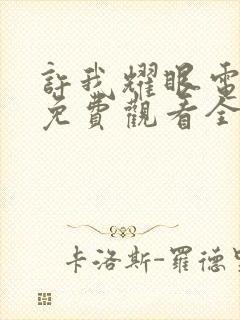 許我耀眼電
免費觀看全
卡洛斯-羅德里